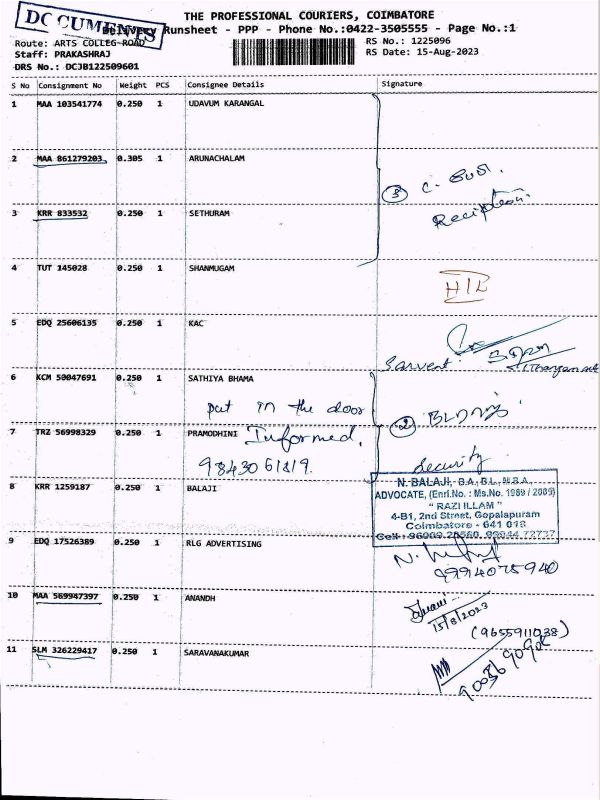 DOCUMENTS
THE PROFESSIONAL COURIERS, COIMBATORE
Delivery Runsheet - PPP - Phone No.:0422-3505555 - Page No.:1
Route: ARTS COLLEG-ROAD
RS No.: 1225096
Staff: PRAKASHRAJ
RS Date: 15-Aug-2023
DRS No.: DCJB122509601
S No Consignment No Weight PCS Consignee Details Signature
1 MAA 103541774 0.250 1 UDAVUM KARANGAL
2 MAA 861279203 0.305 1 ARUNACHALAM
3
Reciption
3 KRR 833532 0.250 1 SETHURAM
4 TUT 145028 0.250 1 SHANMUGAM
HIL
5 EDQ 25606135 0.250 1 KAC
Sarvent
6 KCM 50047691 0.250 1 SATHIYA BHAMA
put in the door
2
7 TRZ 56998329 0.250 1 PRAMODHINI Informed.
Security
8 KRR 1259187 0.250 1 BALAJI
N. BALAJI, B.A., B.L., M.B.A.,
ADVOCATE, (Enrl.No. : Ms.No. 1989 / 2005)
" RAZI ILLAM "
4-B1, 2nd Street, Gopalapuram
Coimbatore - 641 018
9 EDQ 17526389 0.250 1 RLG ADVERTISING
9994075940
10 MAA 569947397 0.250 1 ANANDH
15/8/2023
(9655911038)
11 SLM 326229417 0.250 1 SARAVANAKUMAR